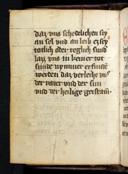 daz vns schedelichen sy
an sel vnd an leib es sy
totlich oder teglich sund
laz vns in keiner tot
sunde ny mmer erfunde
werden daz verleihe vns
der vater vnd der sun
vnd der heilige geist am